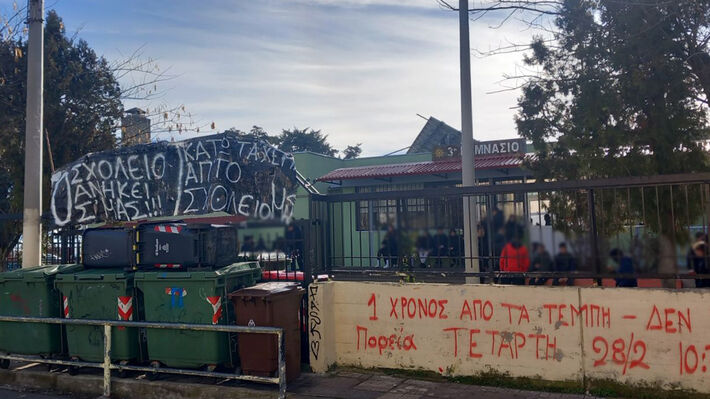 ΣΧΟΛΕΙΟ
ΑΝΗΚΕΙ
Σ' ΜΑΣ!!!
ΚΑΤΩ ΤΑ ΧΕΡΙΑ
ΑΠΤΟ
ΣΧΟΛΕΙΟ ΜΑΣ
3ο ΓΥΜΝΑΣΙΟ
1 ΧΡΟΝΟΣ ΑΠΟ ΤΑ ΤΕΜΠΗ - ΔΕΝ
Πορεία ΤΕΤΑΡΤΗ 28/2 10: